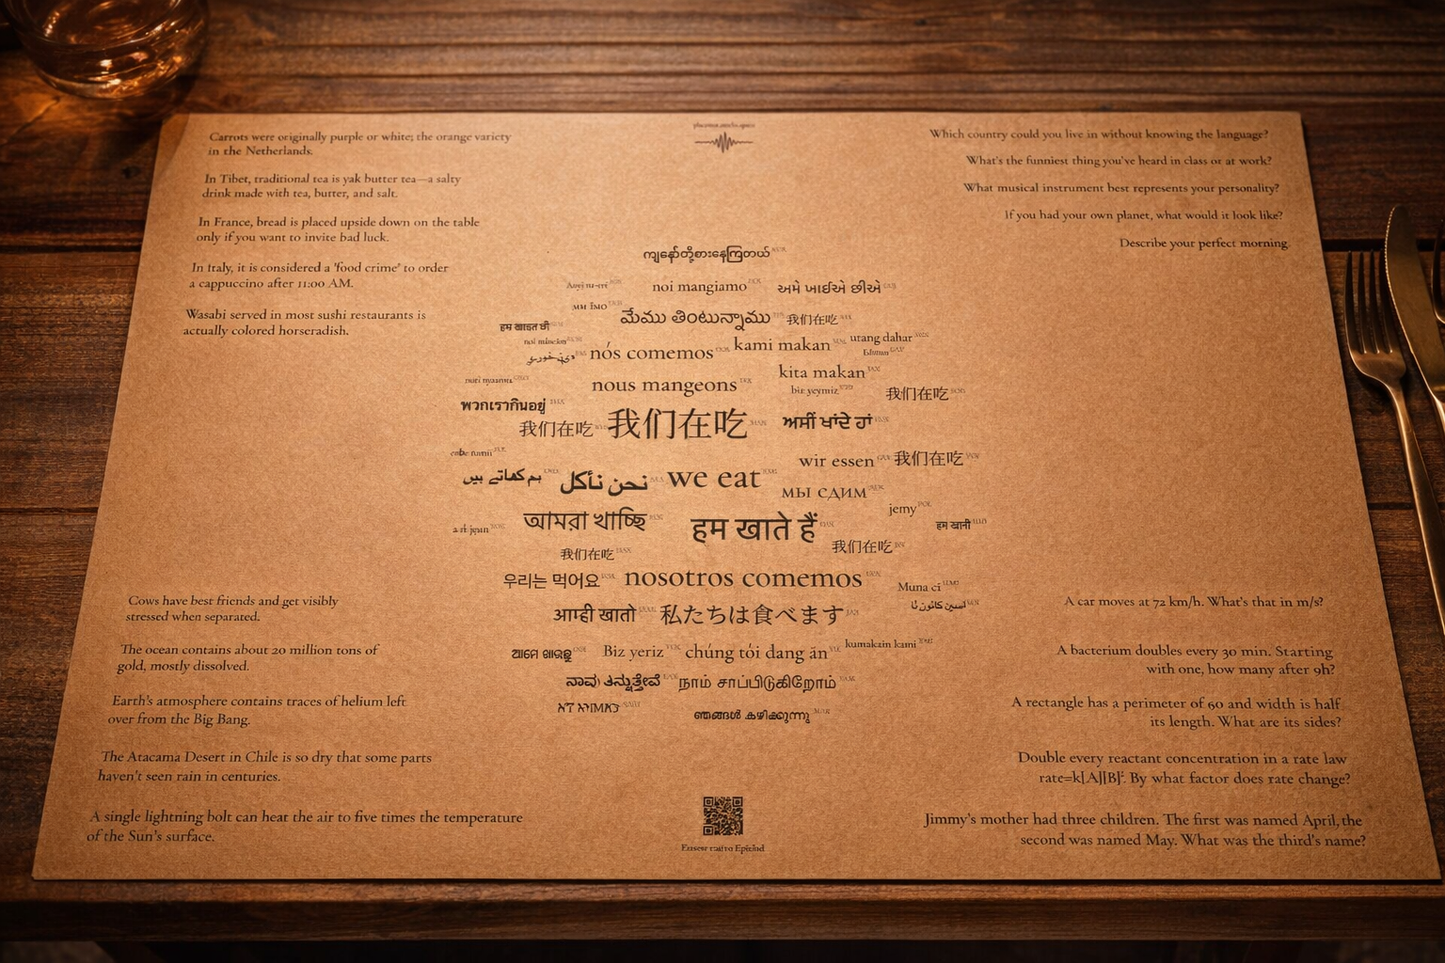 Carrots were originally purple or white; the orange variety
in the Netherlands.
In Tibet, traditional tea is yak butter tea—a salty
drink made with tea, butter, and salt.
In France, bread is placed upside down on the table
only if you want to invite bad luck.
In Italy, it is considered a 'food crime' to order
a cappuccino after 11:00 AM.
Wasabi served in most sushi restaurants is
actually colored horseradish.
Which country could you live in without knowing the language?
What's the funniest thing you've heard in class or at work?
What musical instrument best represents your personality?
If you had your own planet, what would it look like?
Describe your perfect morning.
ကျွန်တော်တို့စားနေကြတယ်
noi mangiamo અમે ખાઈએ છીએ
మేము తింటున్నాము 我们在吃
utang dahar
nós comemos kami makan
kita makan
nous mangeons biz yeymiz 我们在吃
พวกเรากินอยู่
我们在吃 我们在吃 ਅਸੀਂ ਖਾਂਦੇ ਹਾਂ
wir essen 我们在吃
ہم کھاتے ہیں نحن نأكل we eat
мы едим
jemy
আমরা খাচ্ছি हम खाते हैं
我们在吃 我们在吃
우리는 먹어요 nosotros comemos
Muna ci
आम्ही खातो 私たちは食べます
Biz yeriz chúng tôi đang ăn kumakain kami
ನಾವು ತಿನ್ನುತ್ತೇವೆ நாம் சாப்பிடுகிறோம்
ഞങ്ങൾ കഴിക്കുന്നു
Cows have best friends and get visibly
stressed when separated.
The ocean contains about 20 million tons of
gold, mostly dissolved.
Earth's atmosphere contains traces of helium left
over from the Big Bang.
The Atacama Desert in Chile is so dry that some parts
haven't seen rain in centuries.
A single lightning bolt can heat the air to five times the temperature
of the Sun's surface.
A car moves at 72 km/h. What's that in m/s?
A bacterium doubles every 30 min. Starting
with one, how many after 9h?
A rectangle has a perimeter of 60 and width is half
its length. What are its sides?
Double every reactant concentration in a rate law
rate=k[A][B]². By what factor does rate change?
Jimmy's mother had three children. The first was named April, the
second was named May. What was the third's name?